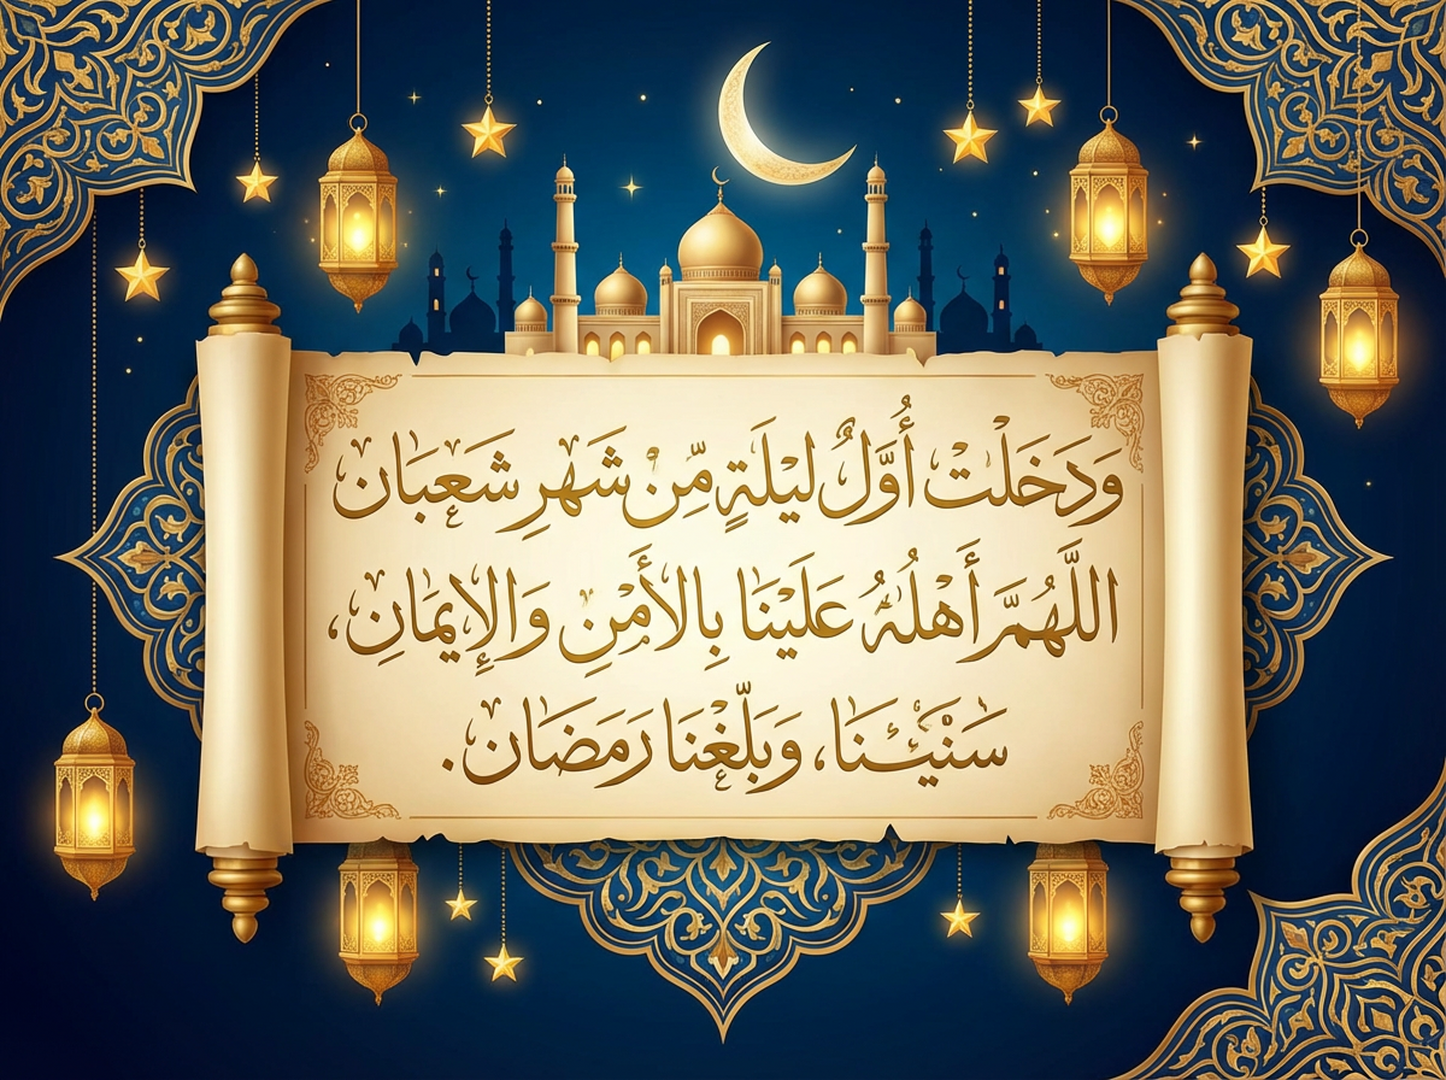 وَدَخَلْتْ أُوَّلُ لَيْلَةٍ مِّنْ شَهْرِ شَعْبَان
اللَّهُمَّ أَهْلُهُ عَلَيْنَا بِالأَمْنِ وَالإِيمَانِ،
وَبَلِّغْنَا رَمَضَان.